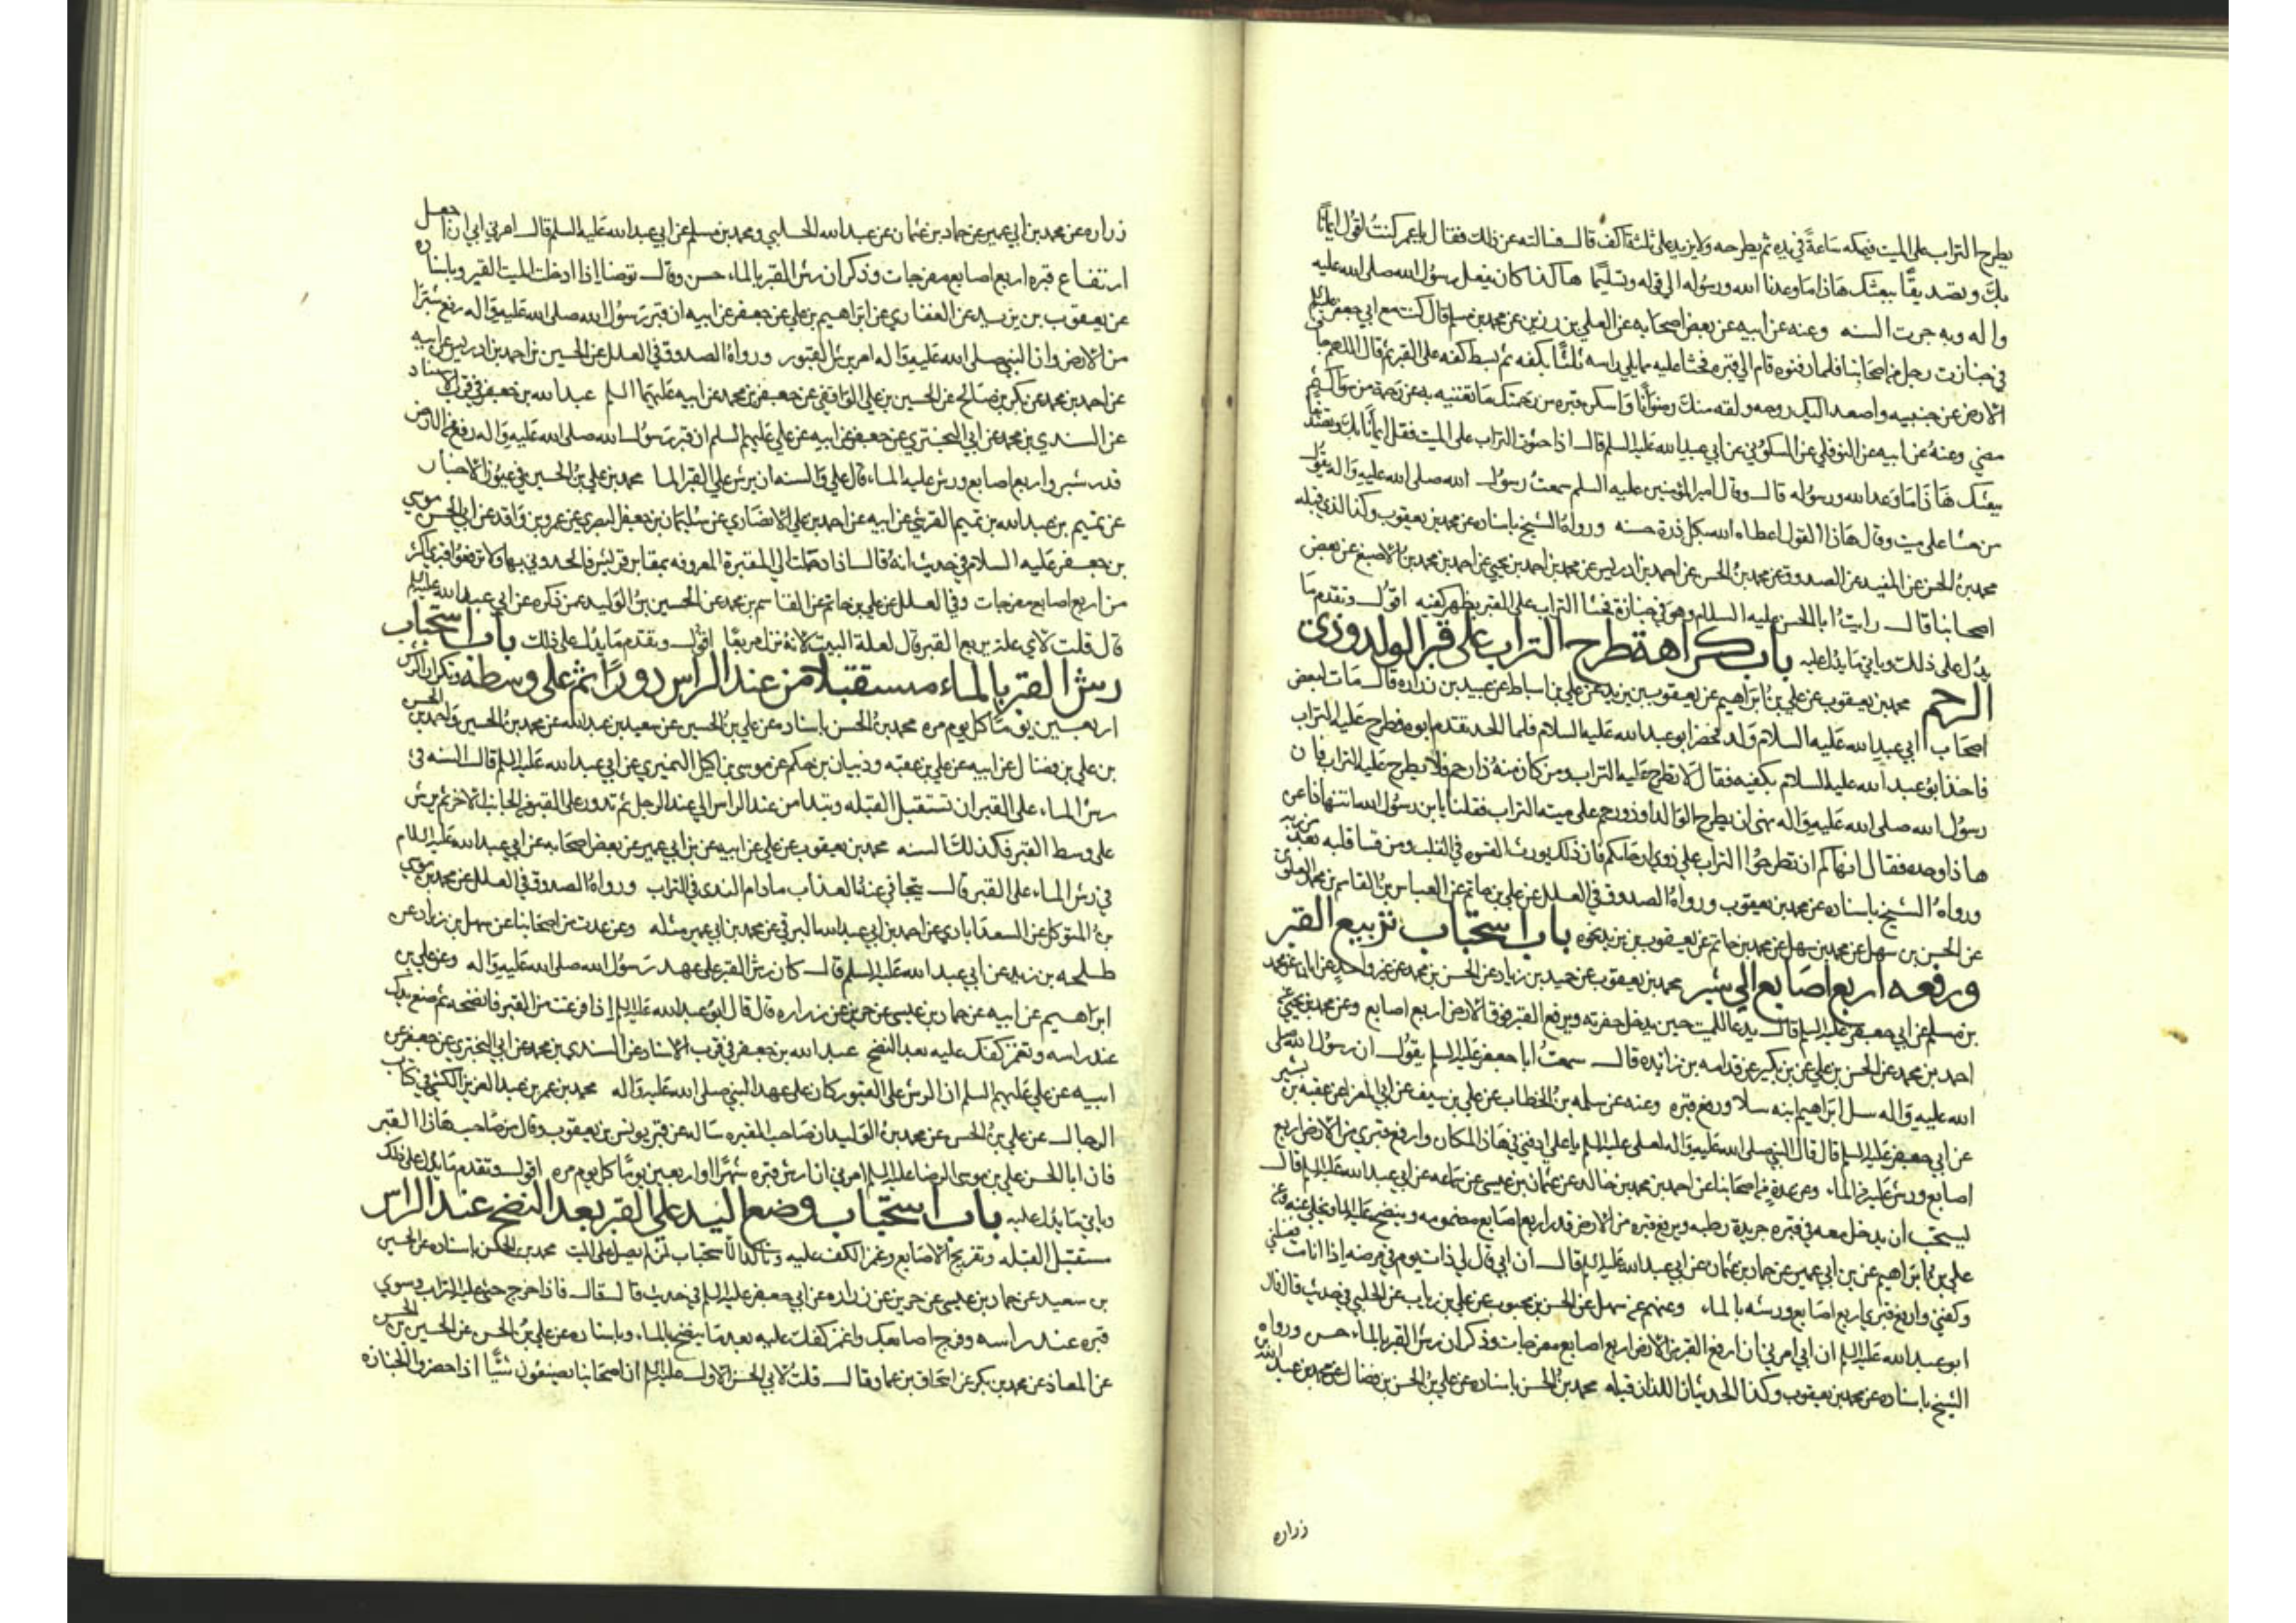 يطرح التراب على الميت فيمسكه ساعة في يده ثم يطرحه ولا يزيد على ثلثة اكف قال فسالته عن ذلك فقال يا عمر كنت اقول ايمانا
بك وتصديقا ببعثك هاذا ما وعدنا الله ورسوله الى قوله وتسليما هاكذا كان يفعل رسول الله صلى الله عليه
واله وبه جرت السنه وعنه عن ابيه عن بعض اصحابه عن العلى بن رزين عن محمد بن مسلم قال كنت مع ابي جعفر عليه السلم
في جنازت رجل من اصحابنا فلما دفنوه قام الى قبره فحثا عليه مما يلي راسه ثلثا بكفه ثم بسط كفه على القبر ثم قال اللهم جاف
الارض عن جنبيه واصعد اليك روحه ولقه منك رضوانا واسكن قبره من رحمتك ما تغنيه به عن رحمة من سواك ثم
مضي وعنه عن ابيه عن النوفلي عن السكوني عن ابي عبد الله عليه السلم قال اذا حثوت التراب على الميت فقل ايمانا بك وتصديقا
ببعثك هاذا ما وعد الله ورسوله قال وقال امير المؤمنين عليه السلم سمعت رسول الله صلى الله عليه واله يقول
من حثا على ميت وقال هاذا القول اعطاه الله بكل ذرة حسنه ورواه الشيخ باسناده عن محمد بن يعقوب وكذا الذي قبله
محمد بن الحسن عن المفيد عن الصدوق عن محمد بن الحسن عن احمد بن ادريس عن محمد بن احمد بن يحيى عن احمد بن محمد بن الاصبغ عن بعض
اصحابنا قال رايت ابا الحسن عليه السلام وهو في جنازة فحثا التراب على القبر بظهر كفيه اقول وتقدم ما
يدل على ذلك وياتي ما يدل عليه باب كراهة طرح التراب على قبر الولد وذي
الرحم محمد بن يعقوب عن علي بن ابراهيم عن يعقوب بن يزيد عن علي بن اسباط عن عبيد بن زراره قال مات لبعض
اصحاب ابي عبد الله عليه السلام ولد فحضر ابو عبد الله عليه السلام فلما الحد تقدم ابوه فطرح عليه التراب
فاخذ ابو عبد الله عليه السلام بكفيه فقال لا تطرح عليه التراب ومن كان منه ذا رحم فلا يطرح عليه التراب فان
رسول الله صلى الله عليه واله نهى ان يطرح الوالد او ذو رحم على ميته التراب فقلنا يا ابن رسول الله اتنهانا عن
هاذا وحده فقال انهاكم ان تطرحوا التراب على ذوي ارحامكم فان ذلك يورث القسوه في القلب ومن قسا قلبه بعد من ربه
ورواه الشيخ باسناده عن محمد بن يعقوب ورواه الصدوق في العلل عن علي بن حاتم عن العباس بن محمد بن القاسم العلوي
عن الحسن بن سهل عن محمد بن سهل عن محمد بن حاتم عن يعقوب بن يزيد نحوه باب استحباب تربيع القبر
ورفعه اربع اصابع الى شبر محمد بن يعقوب عن حميد بن زياد عن الحسن بن محمد عن غير واحد عن ابان عن محمد
بن مسلم عن ابي جعفر عليه السلم قال يدعا للميت حين يدخل حفرته ويرفع القبر فوق الارض اربع اصابع وعن محمد بن يحيى عن
احمد بن محمد عن الحسن بن علي عن بن بكير عن قدامه بن زائده قال سمعت ابا جعفر عليه السلم يقول ان رسول الله صلى
الله عليه واله سل ابراهيم ابنه سلا ورفع قبره وعنه عن سلمه بن الخطاب عن علي بن سيف عن ابي المغرا عن عقبه بن بشير
عن ابي جعفر عليه السلم قال قال النبي صلى الله عليه واله لعلى عليه السلم يا علي ادفني في هاذا المكان وارفع قبري من الارض اربع
اصابع ورش عليه من الماء وعن عدة من اصحابنا عن احمد بن محمد بن خالد عن عثمان بن عيسى عن سماعه عن ابي عبد الله عليه السلم قال
يستحب ان يدخل معه في قبره جريدة رطبه ويرفع قبره من الارض قدر اربع اصابع مضمومه وينضح عليه الماء ويخلى عنه وعن
علي بن ابراهيم عن بن ابي عمير عن حماد بن عثمان عن ابي عبد الله عليه السلم قال ان ابي قال لي ذات يوم في مرضه اذا انا مت فغسلني
وكفني وارفع قبري اربع اصابع ورشه بالماء وعنهم عن سهل عن الحسن بن محبوب عن علي بن رياب عن الحلبي في حديث قال قال
ابو عبد الله عليه السلم ان ابي امرني ان ارفع القبر من الارض اربع اصابع مفرجات وذكر ان رش القبر بالماء حسن ورواه
الشيخ باسناده عن محمد بن يعقوب وكذا الحديثان اللذان قبله محمد بن الحسن باسناده عن علي بن الحسن بن فضال عن محمد بن عبد الله بن
زراره
زراره عن محمد بن ابي عمير عن حماد بن عثمان عن عبيد الله الحلبي ومحمد بن مسلم عن ابي عبد الله عليه السلم قال امرني ابي ان اجعل
ارتفاع قبره اربع اصابع مفرجات وذكر ان رش القبر بالماء حسن وقال توضا اذا ادخلت الميت القبر وباسناده
عن يعقوب بن يزيد عن الغفاري عن ابراهيم بن علي عن جعفر عن ابيه ان قبر رسول الله صلى الله عليه واله رفع شبرا
من الارض وان النبي صلى الله عليه واله امر برش القبور ورواه الصدوق في العلل عن الحسين بن احمد بن ادريس عن ابيه
عن احمد بن محمد عن بكر بن صالح عن الحسين بن علي الرافقي عن جعفر بن محمد عن ابيه عليهما السلم عبد الله بن جعفر في قرب الاسناد
عن السندي بن محمد عن ابي البختري عن جعفر عن ابيه عن علي عليهم السلم ان قبر رسول الله صلى الله عليه واله رفع من الارض
قدر شبر واربع اصابع ورش عليه الماء قال علي والسنه ان يرش على القبر الما محمد بن علي بن الحسين في عيون الاخبار
عن تميم بن عبد الله بن تميم القرشي عن ابيه عن احمد بن علي الانصاري عن سليمان بن جعفر البصري عن عمرو بن واقد عن ابي الحسن موسى
بن جعفر عليه السلام في حديث انه قال اذا حملت الى المقبرة المعروفه بمقابر قريش فالحدوني بها ولا ترفعوا قبري اكثر
من اربع اصابع مفرجات وفي العلل عن علي بن حاتم عن القاسم بن محمد عن الحسين بن الوليد عمن ذكره عن ابي عبد الله عليه السلم
قال قلت لاي علة يربع القبر قال لعلة البيت لانه نزل مربعا اقول وتقدم ما يدل على ذلك باب استحباب
رش القبر بالماء مستقبلا من عند الراس دورا ثم على وسطه وتكرار الرش
اربعين يوما كل يوم مره محمد بن الحسن باسناده عن علي بن الحسين عن سعيد بن عبد الله عن محمد بن الحسين واحمد بن الحسن
بن علي بن فضال عن ابيه عن علي بن عقبه وذبيان بن حكم عن موسى بن اكيل النميري عن ابي عبد الله عليه السلم قال السنه في
رش الماء على القبر ان تستقبل القبله وتبدا من عند الراس الى عند الرجل ثم تدور على القبر من الجانب الاخر ثم يرش
على وسط القبر فكذلك السنه محمد بن يعقوب عن علي عن ابيه عن بن ابي عمير عن بعض اصحابه عن ابي عبد الله عليه السلام
في رش الماء على القبر قال يتجافي عنه العذاب ما دام الندى في التراب ورواه الصدوق في العلل عن محمد بن موسى
بن المتوكل عن السعدابادي عن احمد بن ابي عبد الله البرقي عن محمد بن ابي عمير مثله وعن عدت من اصحابنا عن سهل بن زياد عن
طلحه بن زيد عن ابي عبد الله عليه السلم قال كان رش القبر على عهد رسول الله صلى الله عليه واله وعن علي بن
ابراهيم عن ابيه عن حماد بن عيسى عن حريز عن زراره قال قال ابو عبد الله عليه السلم اذا فرغت من القبر فانضحه ثم ضع يدك
عند راسه وتغمز كفك عليه بعد النضح عبد الله بن جعفر في قرب الاسناد عن السندي بن محمد عن ابي البختري عن جعفر عن
ابيه عن علي عليهم السلم ان الرش على القبور كان على عهد النبي صلى الله عليه واله محمد بن عمر بن عبد العزيز الكشي في كتاب
الرجال عن علي بن الحسن عن محمد بن الوليد ان صاحب المقبره ساله عن قبر يونس بن يعقوب وقال من صاحب هاذا القبر
فان ابا الحسن علي بن موسى الرضا عليه السلم امرني ان ارش قبره شهرا او اربعين يوما كل يوم مره اقول وتقدم ما يدل على ذلك
وياتي ما يدل عليه باب استحباب وضع اليد على القبر بعد النضح عند الراس
مستقبل القبله وتفريج الاصابع وغمز الكف عليه وتاكد الاستحباب لمن لم يصل على الميت محمد بن الحسن باسناده عن الحسين
بن سعيد عن حماد بن عيسى عن حريز عن زراره عن ابي جعفر عليه السلم في حديث قال قال فاذا خرج حثى عليه التراب وسوي
قبره عند راسه وفرج اصابعك واغمز كفك عليه بعد ما ينضح بالماء وباسناده عن علي بن الحسن عن الحسين بن الحسن
عن المعاذ عن محمد بن بكر عن اسحاق بن عمار قال قلت لابي الحسن الاول عليه السلم ان اصحابنا يصنعون شيئا اذا حضروا الجنازه